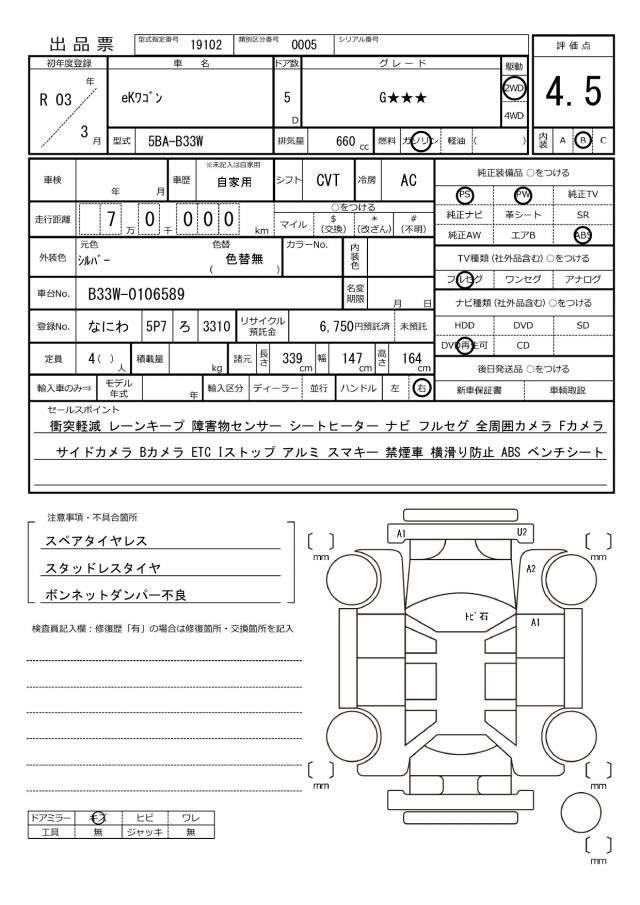 出品票 型式指定番号 19102 類別区分番号 0005 シリアル番号
初年度登録 車 名 ドア数 グレード 駆動 評価点
R 03 年 3 月 eKワゴン 5 D G★★★ 2WD 4WD 4.5
型式 5BA-B33W 排気量 660 cc 燃料 ガソリン 軽油 ( ) 内装 A B C
車検 年 月 車歴 ※未記入は自家用 自家用 シフト CVT 冷房 AC 純正装備品 ○をつける
PS PW 純正TV
走行距離 7 万 0 千 0 0 0 km ○をつける
マイル $ (交換) * (改ざん) # (不明)
純正ナビ 革シート SR
純正AW エアB ABS
外装色 元色 シルバー 色替 ( 色替無 ) カラーNo. 内装色
TV種類 (社外品含む) ○をつける
フルセグ ワンセグ アナログ
車台No. B33W-0106589 名変期限 月 日
ナビ種類 (社外品含む) ○をつける
登録No. なにわ 5P7 ろ 3310 リサイクル預託金 6,750円預託済 未預託
HDD DVD SD
DVD再生可 CD
定員 4 ( ) 人 積載量 kg 諸元 長さ 339 cm 幅 147 cm 高さ 164 cm
後日発送品 ○をつける
輸入車のみ⇒ モデル年式 年 輸入区分 ディーラー 並行 ハンドル 左 右 新車保証書 車輌取説
セールスポイント
衝突軽減 レーンキープ 障害物センサー シートヒーター ナビ フルセグ 全周囲カメラ Fカメラ
サイドカメラ Bカメラ ETC Iストップ アルミ スマキー 禁煙車 横滑り防止 ABS ベンチシート
注意事項・不具合箇所
スペアタイヤレス
スタッドレスタイヤ
ボンネットダンパー不良
検査員記入欄：修復歴「有」の場合は修復箇所・交換箇所を記入
A1 U2
mm mm
A2
トビ石 A1
mm mm
mm
ドアミラー キズ ヒビ ワレ
工具 無 ジャッキ 無